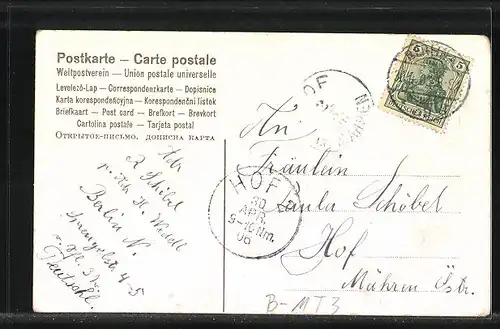 Postkarte — Carte postale
Weltpostverein — Union postale universelle
Levelező-Lap — Correspondenzkarte — Dopisnice
Karta korespondencyjna — Korespondenční listek
Briefkaart — Post card — Brefkort — Brevkort
Cartolina postale — Tarjeta postal
ОТКРЫТОЕ-ПИСЬМО. ДОПИСНА КАРТА
5 5
HOF
MÄHREN
An
Fräulein
Paula Schöbel
Hof
Mähren Östr.
HOF
30
APR.
9-10 Nm.
06
Adr
R Schöbel
Berlin N.
4-5
Deutschl.
B-MT3